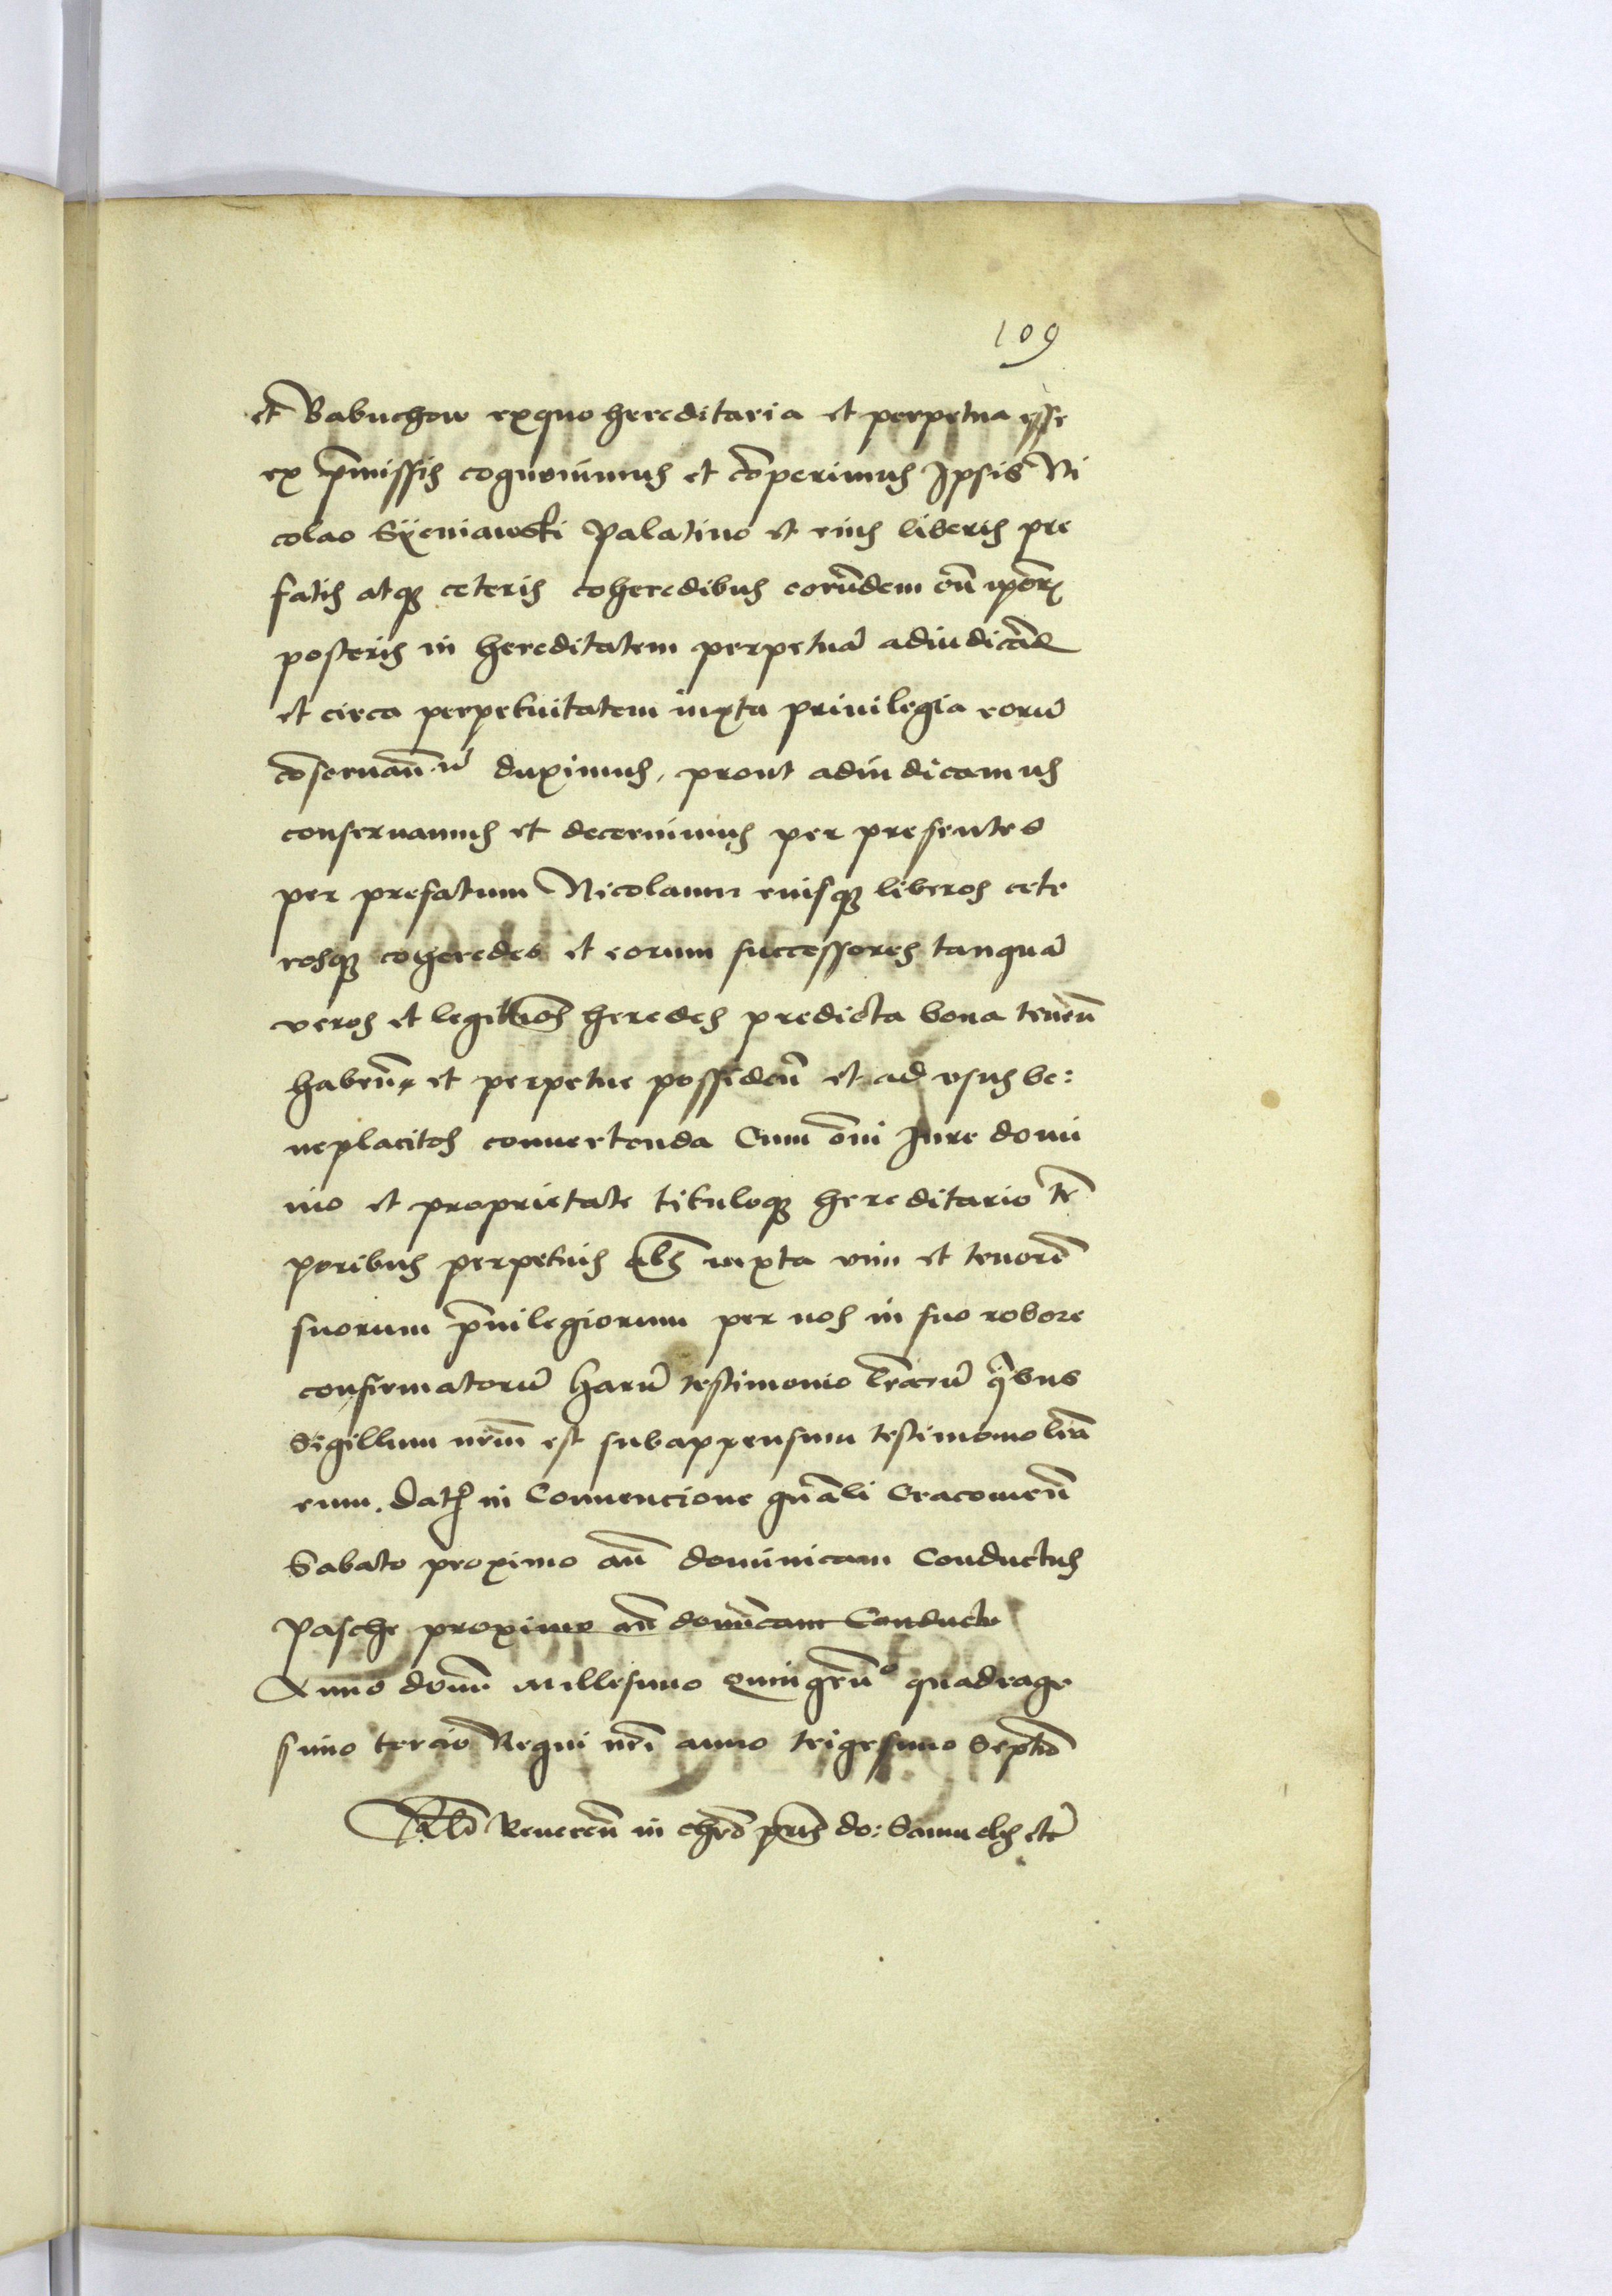 109
et Babuchow exquo hereditaria et perpetua esse
ex p̄missis cognouimus et cōperimus Ipsis Ni
colao Syeniawski Palatino et eius liberis pre
fatis atqꝫ ceteris coheredibus eorūdem cū ip̄orꝝ
posteris in hereditatem perpetuā adiudicād̄
et circa perpetuitatem iuxta priuilegia eorū
cōseruan̄ duximus, prout adiudicamus
conseruamus et decernimus per presentes
per prefatum Nicolaum eiusqꝫ liberos cete
rosqꝫ coheredes et eorum successores tanquā
veros et legittīos heredes predicta bona tenen̄
haben̄ et perpetue possiden̄ et ad vsus be:
neplacitos conuertenda Cum om̄i Iure domi
nio et proprietate tituloqꝫ hereditario tē
poribus perpetuis iuxta vim et tenorē
suorum p̄uilegiorum per nos in suo robore
confirmatorū harū testimonio l̄rarū qͥbus
Sigillum nr̄m est subappensum testimonio l̄ra
rum. Dat̄ in Conuencione gn̄ali Cracouien̄
Sabato proximo an̄ dominicam Conductus
Pasche proximo an̄ domīcam Conductu
Anno domi millesimo quingen̄ᵒ quadrage
simo tercio Regni nr̄i anno trigesimo Septīo
Reueren̄ in chr̄o pr̄is do: Samuelis etc̄